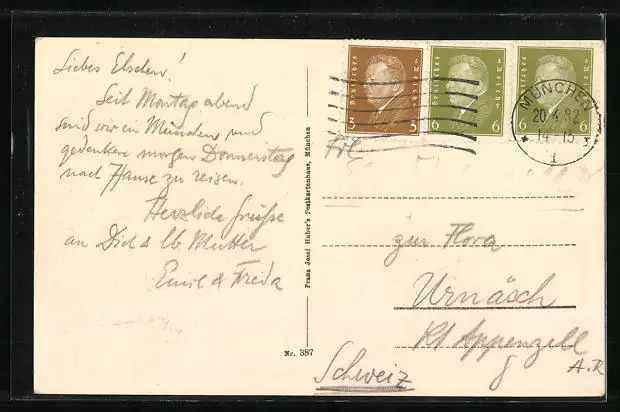 Liebes Elschen!
Seit Montag abend
sind wir in München und
gedenken morgen Donnerstag
nach Hause zu reisen.
Herzliche Grüsse
an Dich & lb. Mutter
Emil & Frieda
Franz Josef Huber's Postkartenhaus, München
Nr. 387
Deutsches Reich
3 3
Deutsches Reich
6 6
Deutsches Reich
6 6
MÜNCHEN
20.4.32
14-15
1
Frl.
zur Flora
Urnäsch
Kt Appenzell
A.R
Schweiz